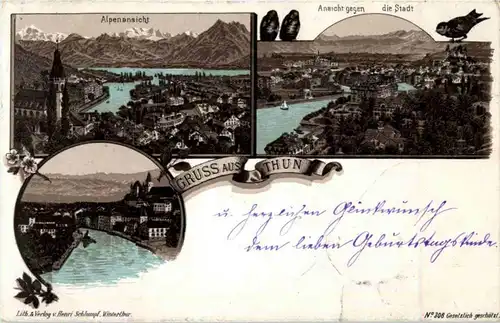 Alpenansicht
Ansicht gegen die Stadt
GRUSS AUS THUN
u. herzlichen Glückwunsch
dem lieben Geburtstagskinde.
Lith. & Verlag v. Henri Schlumpf, Winterthur.
No 208 Gesetzlich geschützt.